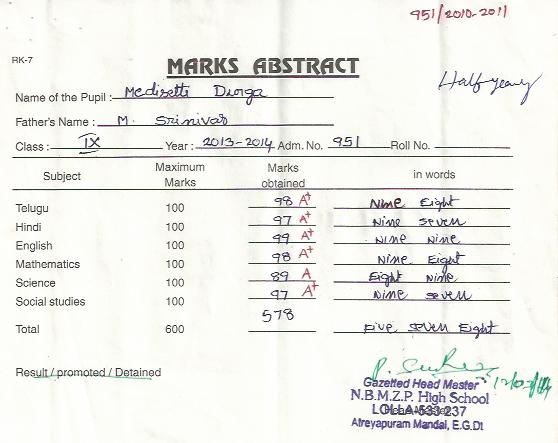 951/2010-2011
RK-7
MARKS ABSTRACT
Half yearly
Name of the Pupil : Medisetti Durga
Father's Name : M. Srinivas
Class : IX Year : 2013-2014 Adm. No. 951 Roll No.
Subject Maximum Marks Marks obtained in words
Telugu 100 98 A+ Nine Eight
Hindi 100 97 A+ Nine Seven
English 100 99 A+ Nine Nine
Mathematics 100 98 A+ Nine Eight
Science 100 89 A Eight Nine
Social studies 100 97 A+ Nine Seven
Total 600 578 Five Seven Eight
Result / promoted / Detained
Gazetted Head Master
N.B.M.Z.P. High School
LOLLA-533 237
Atreyapuram Mandal, E.G.Dt